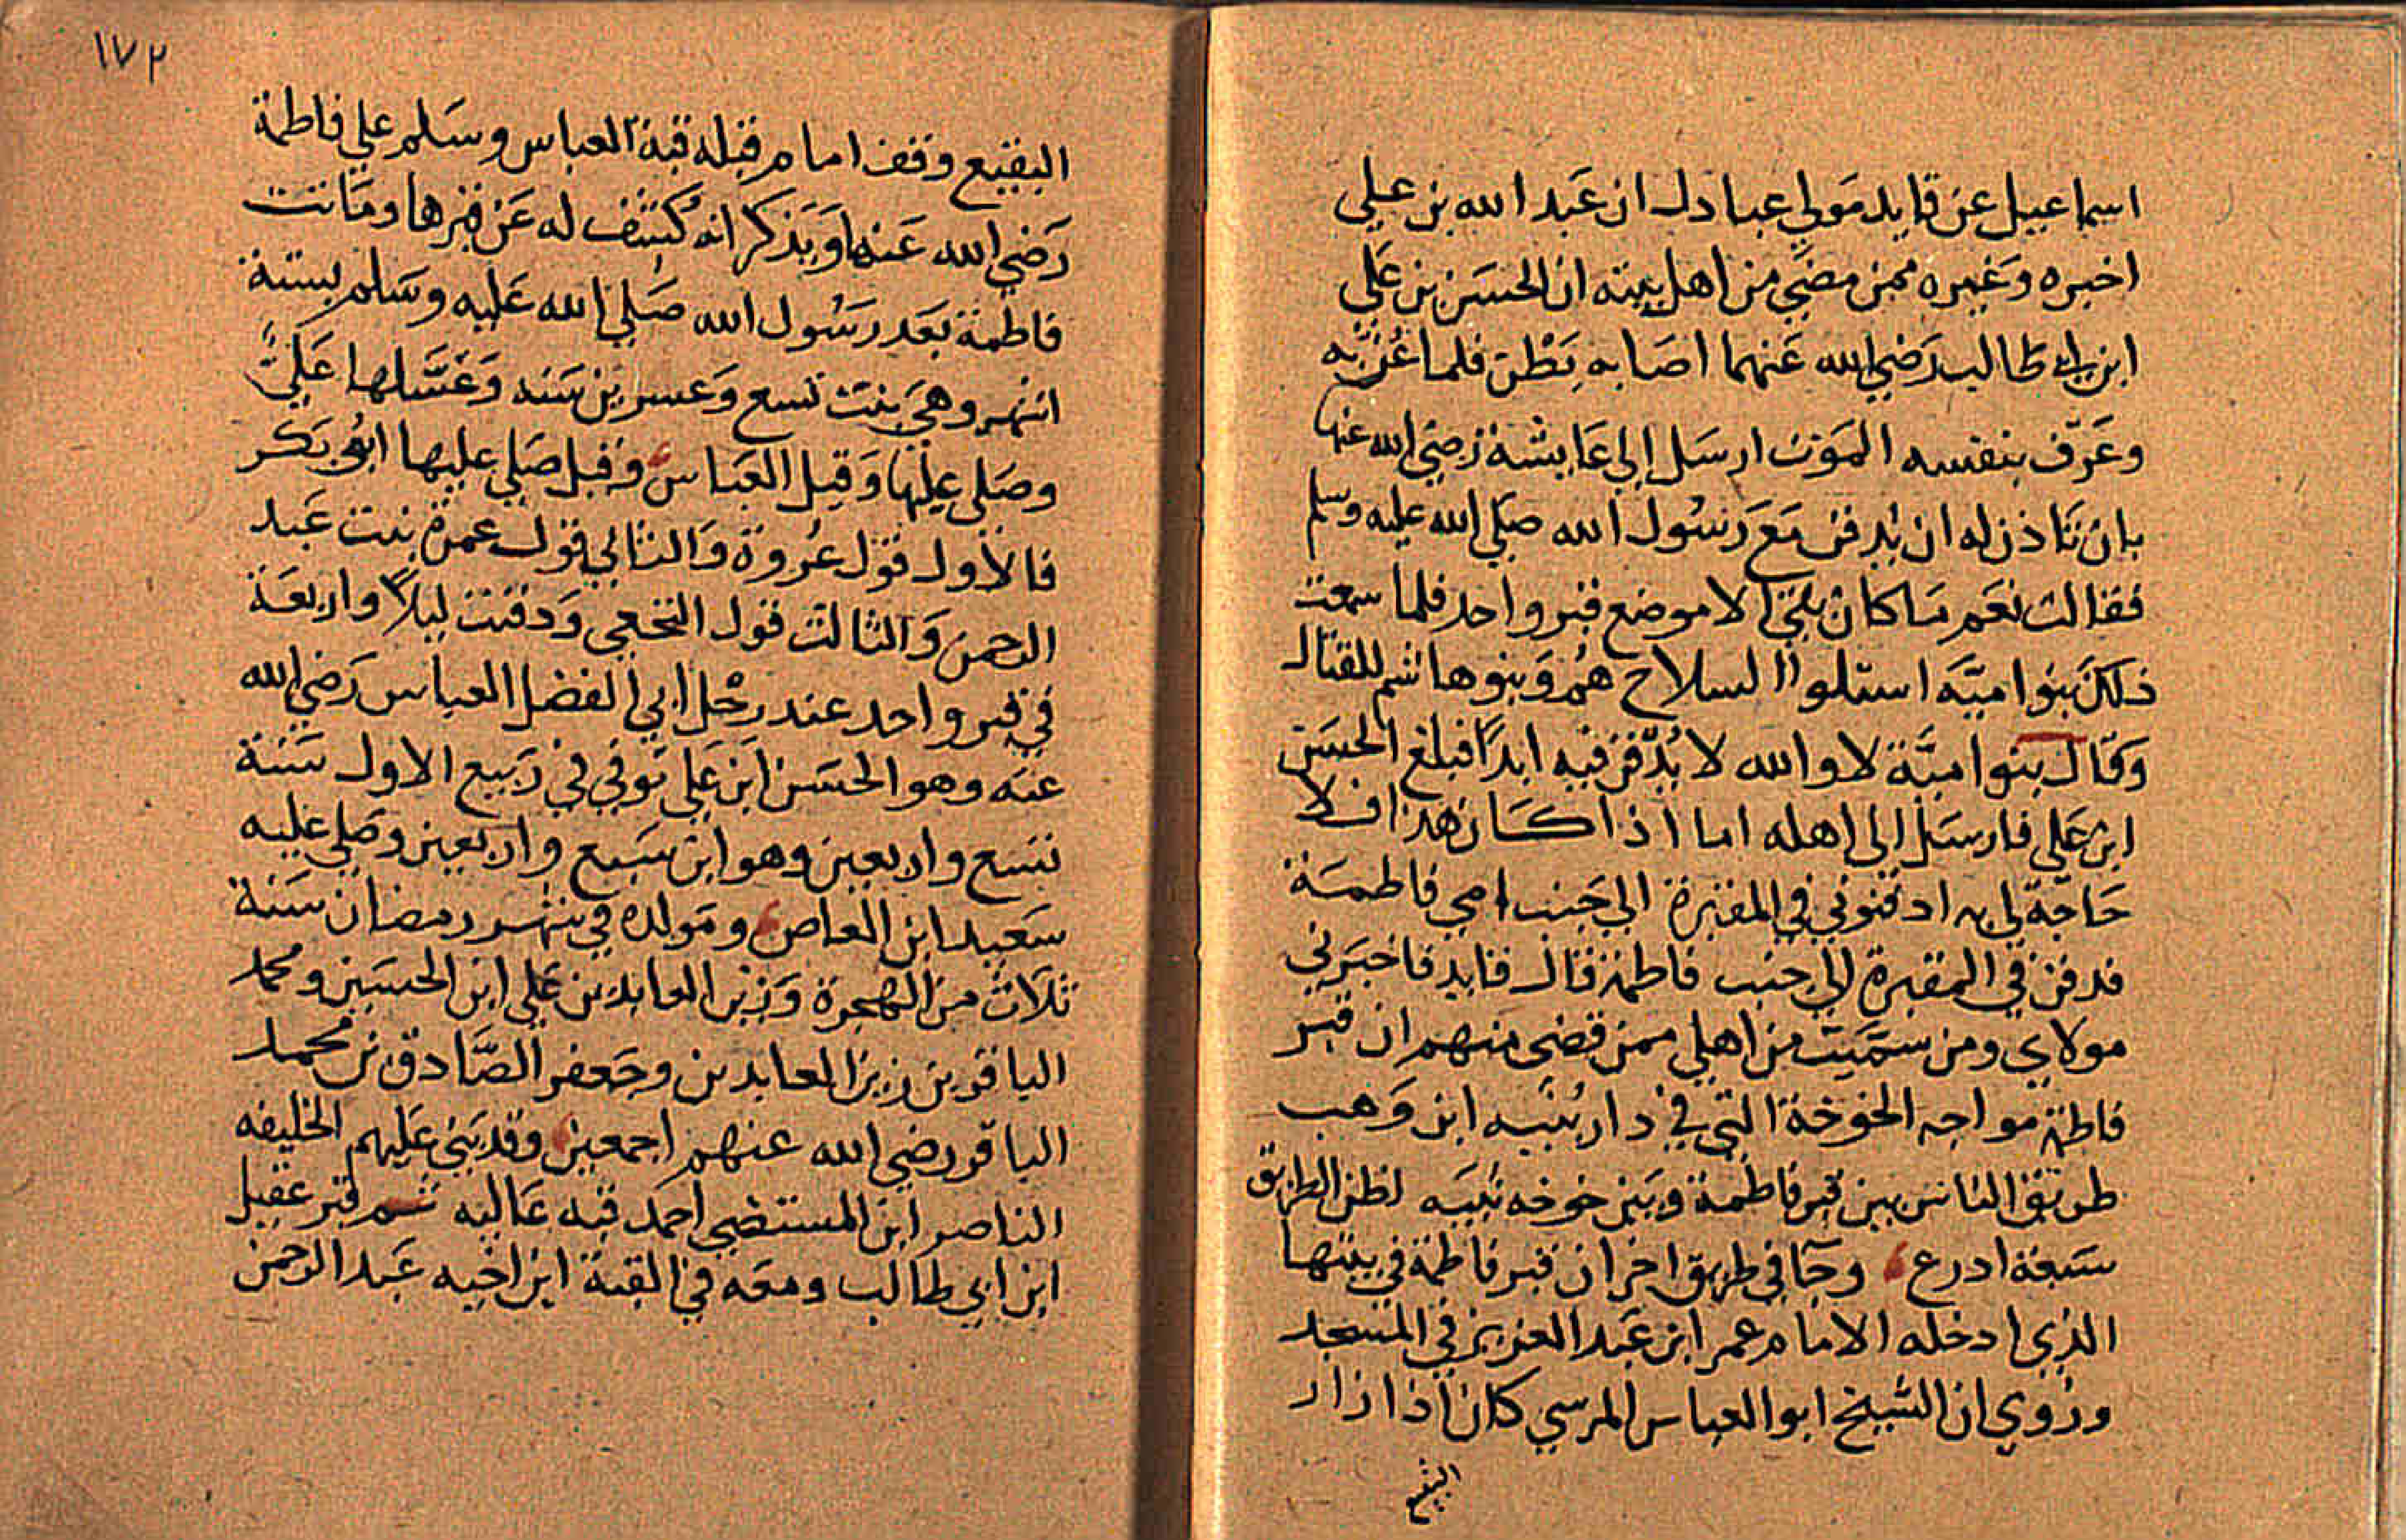 اسماعيل عن قايد مولي عبادل ان عبد الله بن علي
اخبره وغيره ممن مضي من اهل بيته ان الحسن بن علي
ابن ابي طالب رضي الله عنهما اصابه بطن فلما
وعرف بنفسه الموت ارسل إلي عايشة رضي الله عنها
بان تاذن له ان يدفن مع رسول الله صلي الله عليه وسلم
فقالت نعم ما كان بقي الا موضع قبر واحد فلما سمعت
ذلك بنوا اميّه استلوا السلاح هم وبنوها شم للقتال
وقال بنوا ميّة لا والله لا يدّفن فيه ابدًا فبلغ الحسن
ابن علي فارسل الي اهله اما اذا كان هذا فلا
حاجة لي به ادفنوني في المقبرة الي جنب امي فاطمة
فدفن في المقبرة الي جنب فاطمة قال قايد فاخبرني
مولاي ومن سمّيت من اهلي ممن قضي منهم ان قبر
فاطمة مواجه الخوخة التي في دار نبيه ابن وهب
طريق الناس بين قبر فاطمة وبين خوخه نبيه اظن الطريق
سبعة ادرع وجا في طريق اخر ان قبر فاطمة في بيتها
الذي ادخله الامام عمر ابن عبد العزيز في المسجد
وروي ان الشيخ ابو العباس المرسي كان اذا زار
البقيع
١٧٢
البقيع وقف امام قبله قبة العباس وسلم علي فاطمة
رضي الله عنها ويذكر انه كشف له عن قبرها وماتت
فاطمة بعد رسول الله صلي الله عليه وسلم بستة
اشهر وهي بنت تسع وعسرين سنه وغسّلها عليّ
وصلي عليها وقيل العباس وقيل صلي عليها ابو بكر
فالاول قول عروة والثاني قول عمرة بنت عبد
الرحمن والثالث قول النخعي ودفنت ليلاً واربعة
في قبر واحد عند رجل ابي الفضل العباس رضي الله
عنه وهو الحسن ابن علي توفي في ربيع الاول سنة
تسع واربعين وهو ابن سبع واربعين وصلي عليه
سعيد ابن العاص ومولده في شهر رمضان سنة
ثلاث من الهجرة وزين العابدين علي ابن الحسين ومحمد
الباقر بن زين العابدين وجعفر الصّادق بن محمد
الباقر رضي الله عنهم اجمعين وقد بني عليهم الخليفه
الناصر ابن المستضي احمد قبه عاليه ثم قبر عقيل
ابن ابي طالب ومعه في القبة ابن اخيه عبد الرحمن